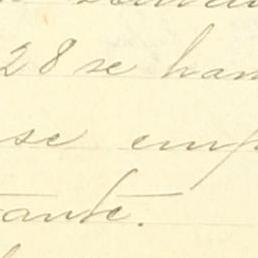 28 se han
se emp
tante.